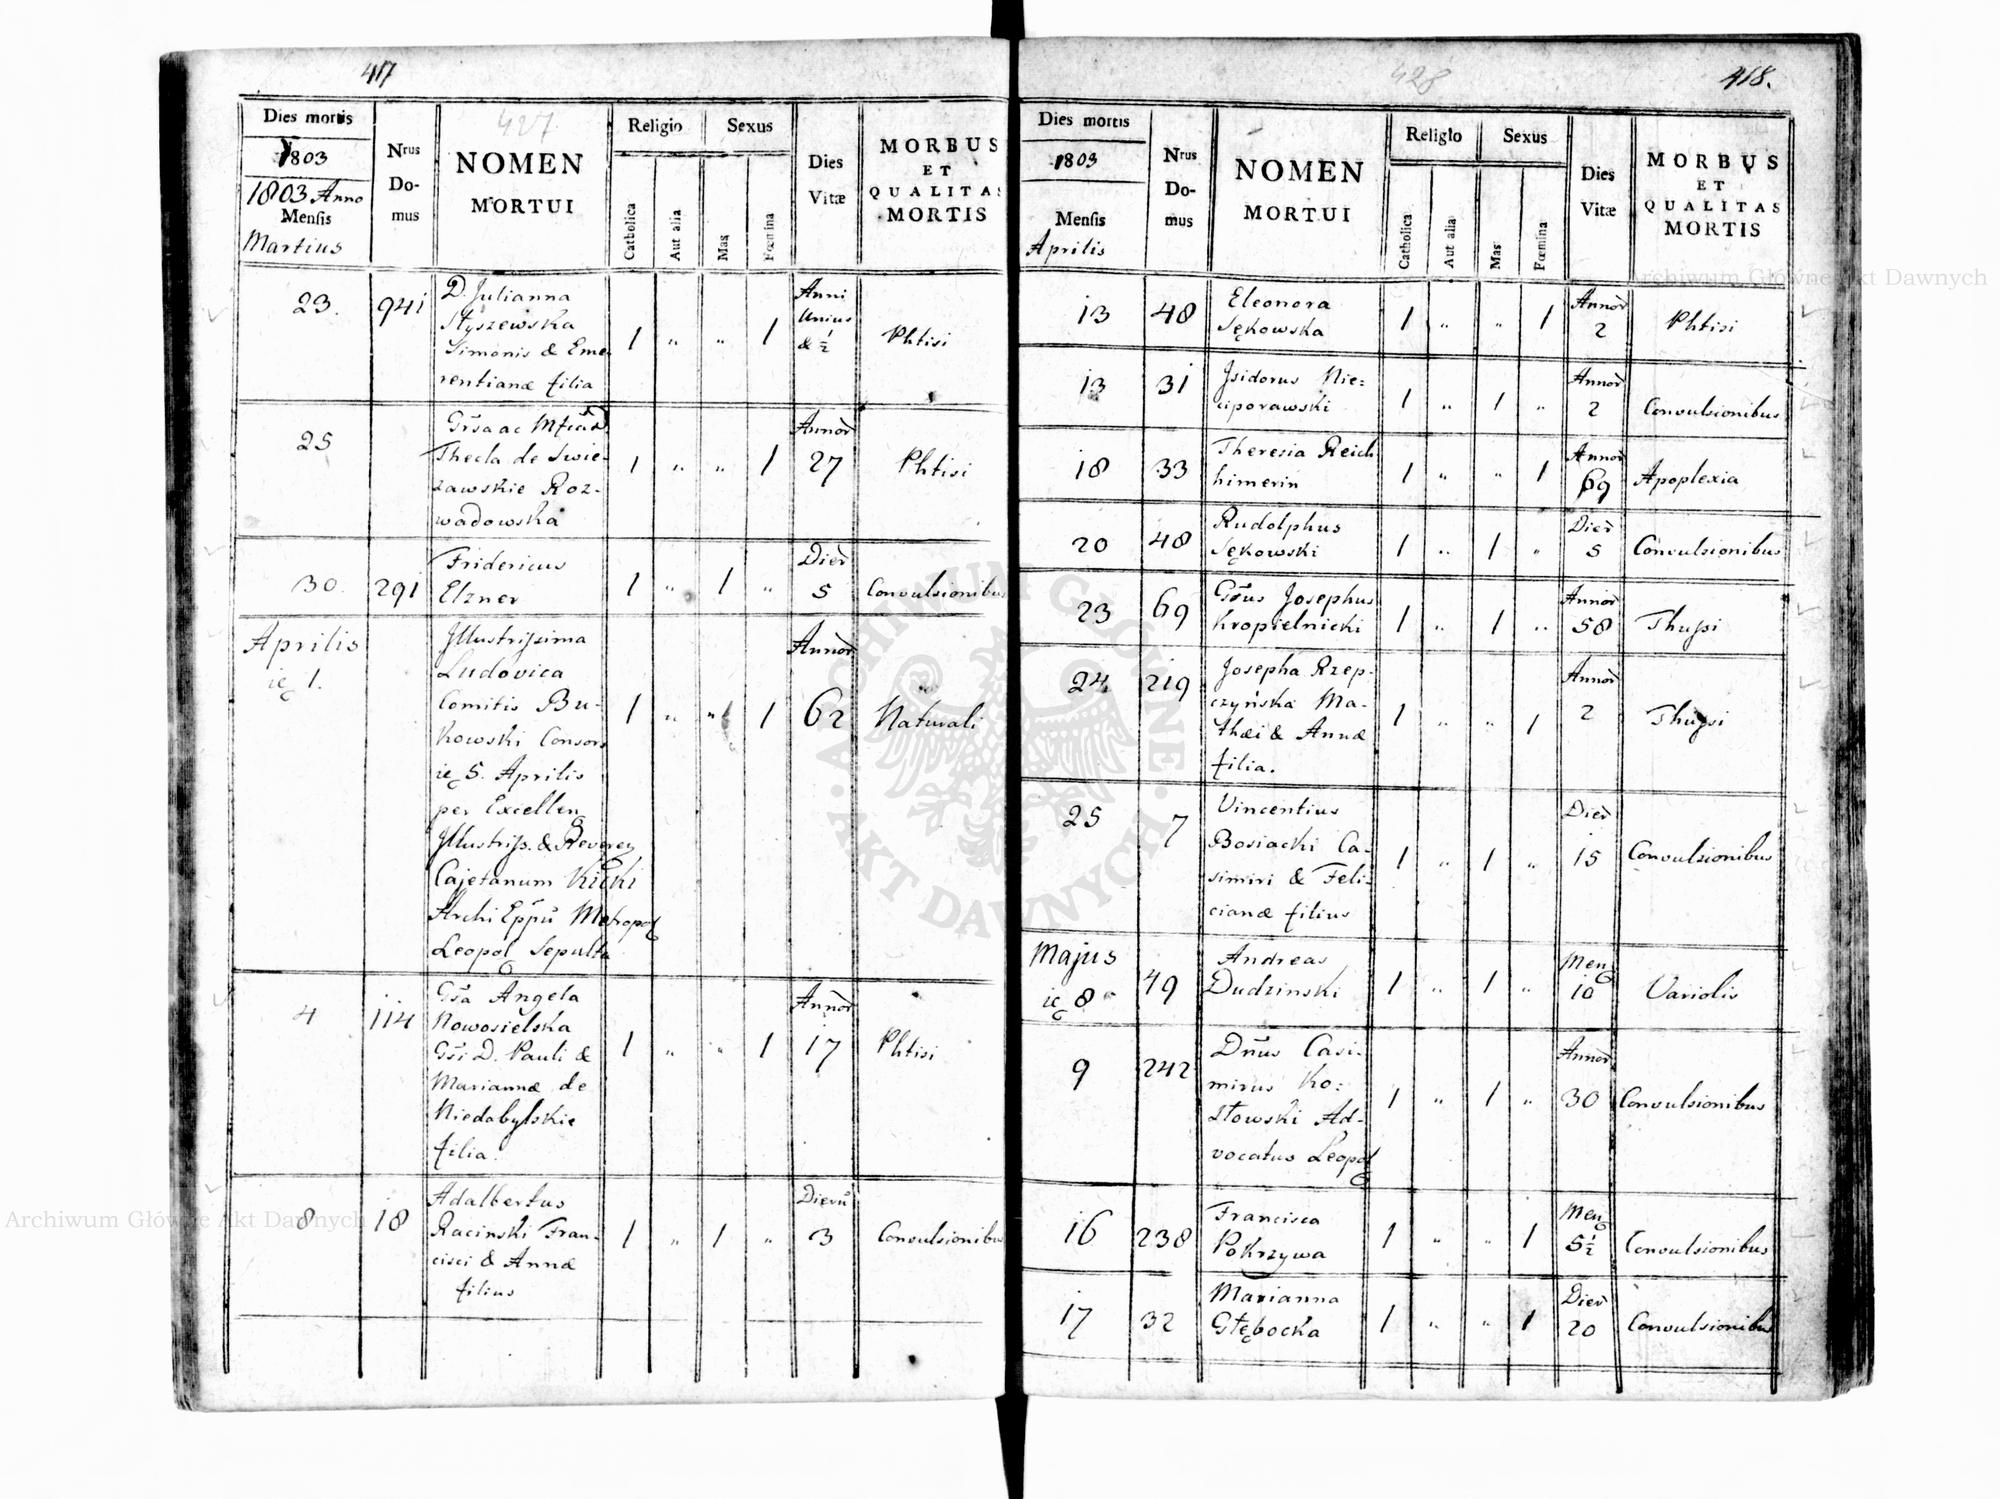 417
427
Dies mortis
1803
1803 Anno
Mensis
Martius
Nrus
Do-
mus
NOMEN
MORTUI
Religio
Sexus
Catholica
Aut alia
Mas
Fœmina
Dies
Vitæ
MORBUS
ET
QUALITAS
MORTIS
23. 941 D. Julianna
Styszewska
Simonis & Eme
rentianæ filia
1 " " 1 Anni
Unius
& ½
Phtisi
25
Thecla de Swie-
zawskie Roz-
wadowska
1 " " 1 Annor
27 Phtisi
30. 291 Fridericus
Elzner
1 " 1 " Dier
5 Convulsionibus
Aprilis
ie 1.
Illustrissima
Ludovica
Comitis Bu-
kowski Consors
ie 5. Aprilis
per Excellen
Illustriss. & Reveren
Cajetanum Kicki
Archi Eppũ Metropol
Leopol Sepulta
1 " " 1 Annor
62 Naturali
4 114 Gsa Angela
Nowosielska
Gsi D. Pauli &
Mariannæ de
Niedabylskie
filia.
1 " " 1 Annor
17 Phtisi
8 18 Adalbertus
Racinski Fran-
cisci & Annæ
filius
1 " 1 " Dierũ
3 Convulsionibus
428
418.
Dies mortis
1803
Mensis
Aprilis
Nrus
Do-
mus
NOMEN
MORTUI
Religio
Sexus
Catholica
Aut alia
Mas
Fœmina
Dies
Vitæ
MORBUS
ET
QUALITAS
MORTIS
13 48 Eleonora
Sękowska
1 " " 1 Annor
2 Phtisi
13 31 Isidorus Nie=
ciporawski
1 " 1 " Annor
2 Convulsionibus
18 33 Theresia Reich
himerin
1 " " 1 Annor
69 Apoplexia
20 48 Rudolphus
Sękowski
1 " 1 " Dier
5 Convulsionibus
23 69 Gsus Josephus
Kropielnicki
1 " 1 " Annor
58 Thussi
24 219 Josepha Rzep-
czyńska Ma-
thæi & Annæ
filia.
1 " " 1 Annor
2 Thussi
25 7 Vincentius
Bosiacki Ca-
simiri & Feli=
cianæ filius
1 " 1 " Dier
15 Convulsionibus
Majus
ie 8 49 Andreas
Dudzinski
1 " 1 " Men
10 Variolis
9 242 Dnus Casi-
mirus Ko=
złowski Ad-
vocatus Leopol
1 " 1 " Annor
30 Convulsionibus
16 238 Francisca
Pokrzywa
1 " " 1 Men
5½ Convulsionibus
17 32 Marianna
Głębocka
1 " " 1 Dier
20 Convulsionibus
Archiwum Główne Akt Dawnych
Archiwum Główne Akt Dawnych
ARCHIWUM GŁÓWNE · AKT DAWNYCH ·